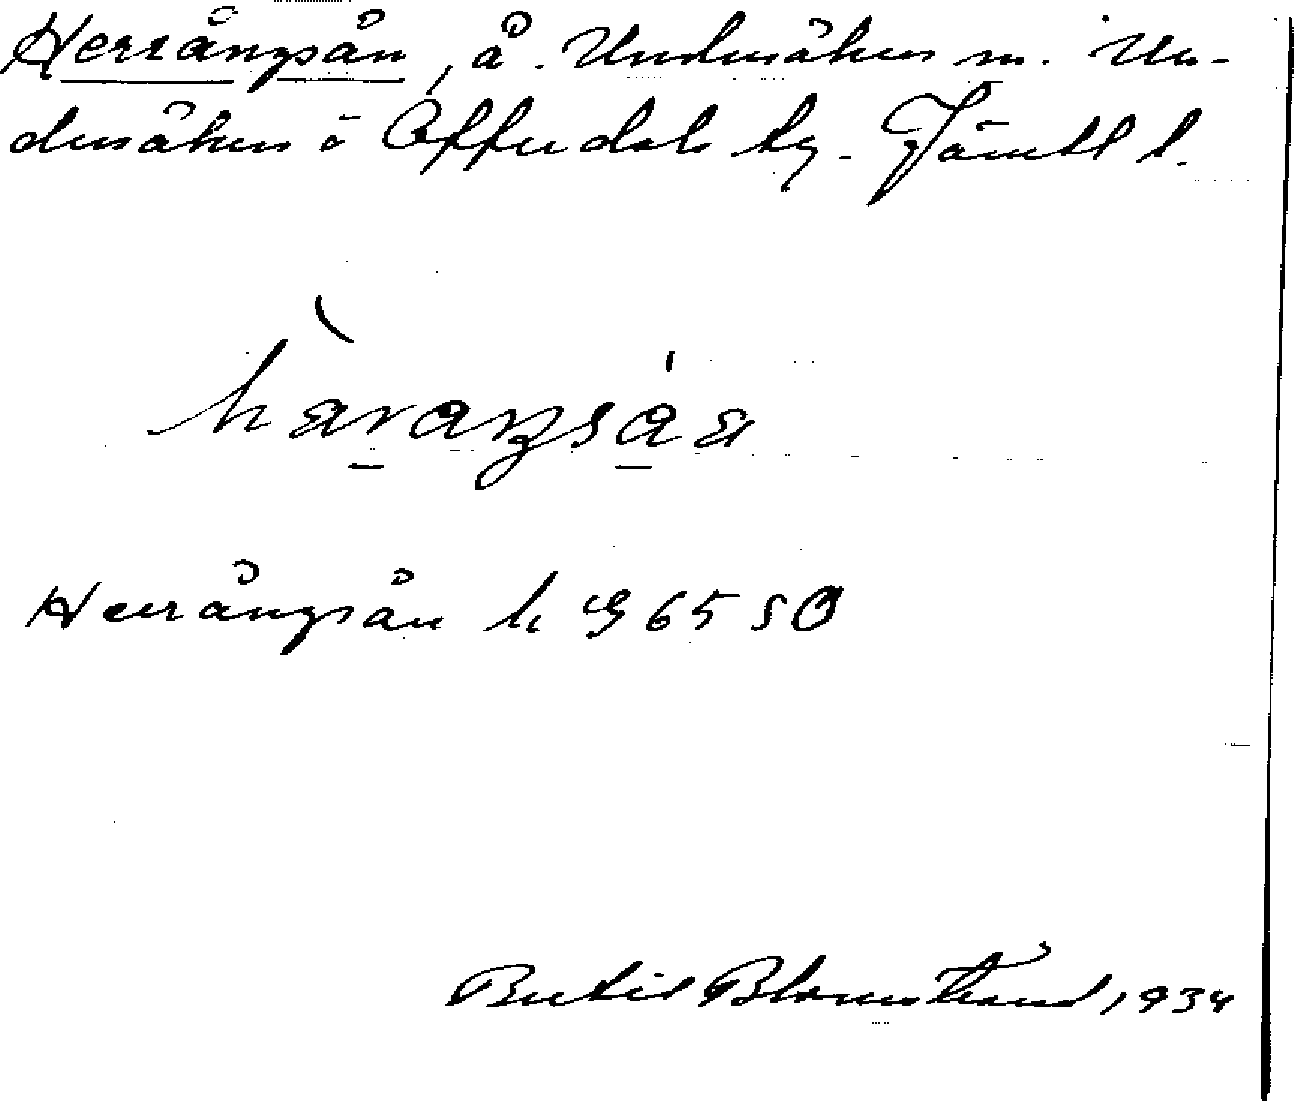 Herrångsån, å. Undersåkers sn. Un-
dersåkers o Offerdals tg. Jämtl l.
hàraŋsáa
Herrångsån k G 65 SO
Bertil Blomstrand, 1934